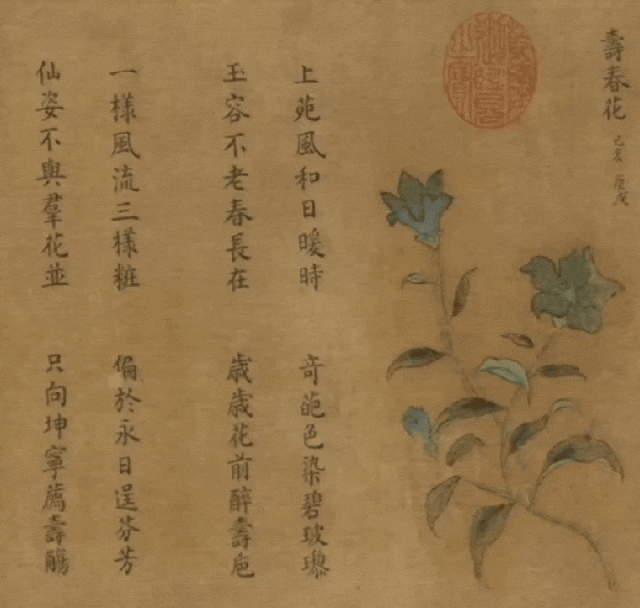 壽春花
己亥庚戌
上苑風和日暖時
奇葩色染碧玻瓈
玉容不老春長在
歲歲花前醉壽巵
一樣風流三樣粧
偏於永日逞芬芳
仙姿不與羣花並
只向坤寧薦壽觴